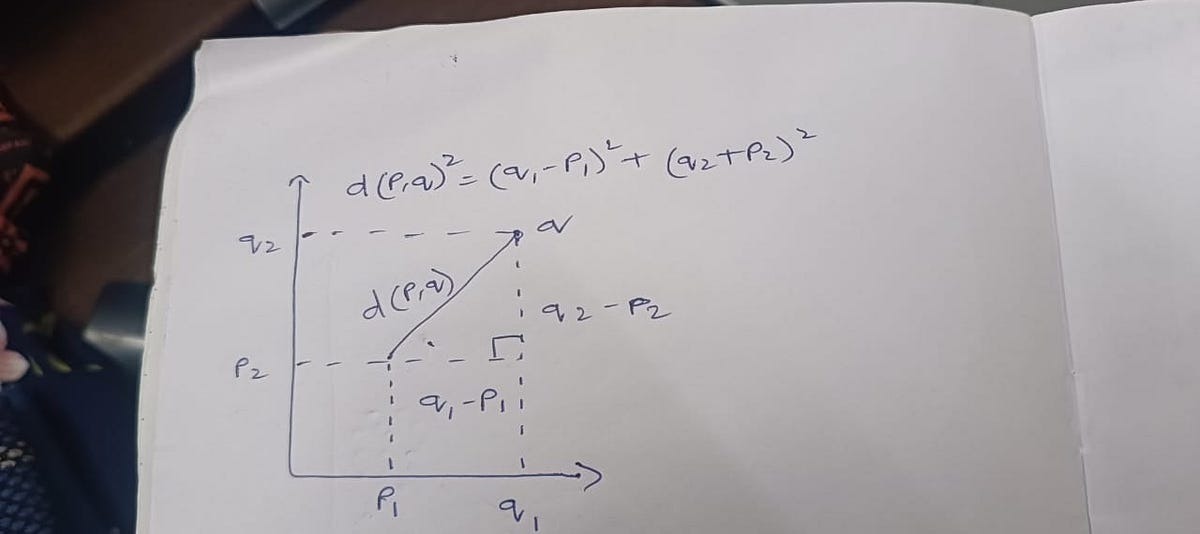 d(p,q)² = (q₁-p₁)² + (q₂+p₂)²
q₂
q
d(p,q)
q₂-p₂
p₂
q₁-p₁
p₁
q₁